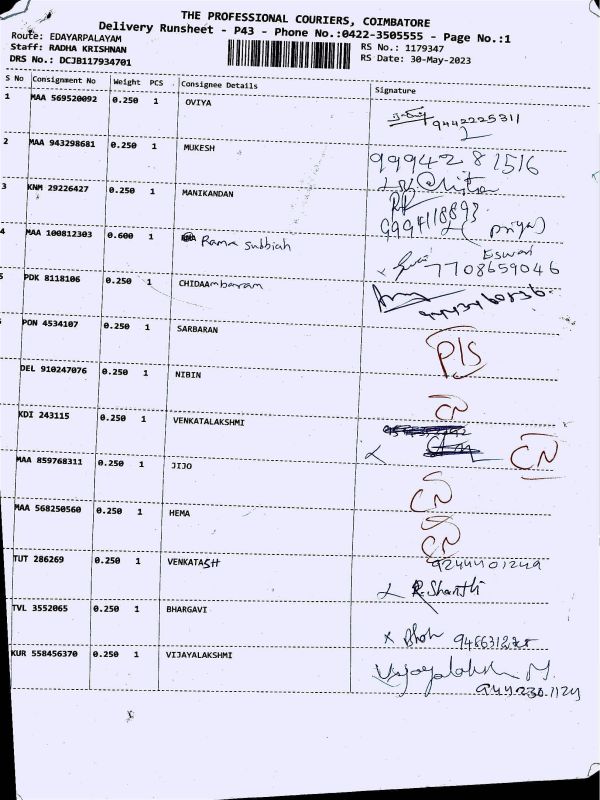 THE PROFESSIONAL COURIERS, COIMBATORE
Delivery Runsheet - P43 - Phone No.:0422-3505555 - Page No.:1
Route: EDAYARPALAYAM
Staff: RADHA KRISHNAN RS No.: 1179347
DRS No.: DCJB117934701 RS Date: 30-May-2023
S No Consignment No Weight PCS Consignee Details Signature
1 MAA 569520092 0.250 1 OVIYA
9442225311
2 MAA 943298681 0.250 1 MUKESH
99942 81516
3 KNM 29226427 0.250 1 MANIKANDAN
9994118893 (Priya)
4 MAA 100812303 0.600 1 Rama subbiah
Eswari
7708659046
5 PDK 8118106 0.250 1 CHIDAAmbaram
PON 4534107 0.250 1 SARBARAN
P/S
DEL 910247076 0.250 1 NIBIN
CN
KDI 243115 0.250 1 VENKATALAKSHMI
CN
MAA 859768311 0.250 1 JIJO
CN
MAA 568250560 0.250 1 HEMA
CN
TUT 286269 0.250 1 VENKATASH
9244401249
R. Shanthi
TVL 3552065 0.250 1 BHARGAVI
KUR 558456370 0.250 1 VIJAYALAKSHMI